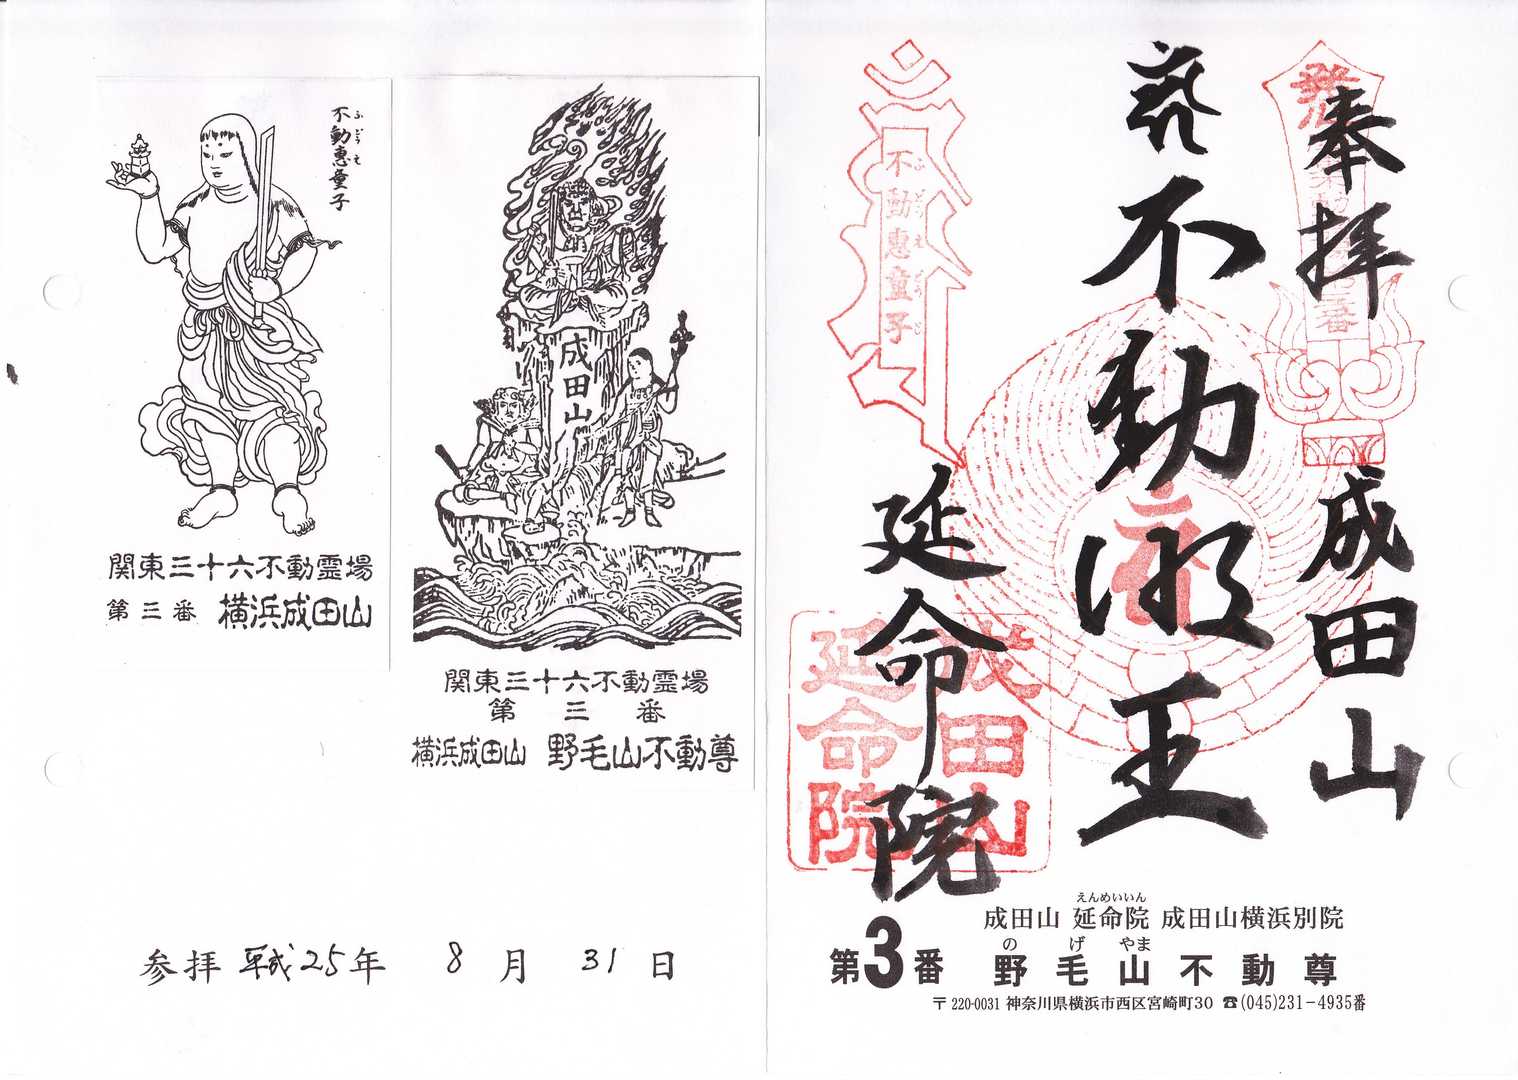 奉拝
成田山
不動明王
延命院
発心
不動恵童子
ふどうえどうじ
成田山
延命院
成田山 延命院 成田山横浜別院
えんめいいん
第3番 野毛山不動尊
のげやま
〒220-0031 神奈川県横浜市西区宮崎町30 ☎(045)231-4935番
不動恵童子
ふどうえ
関東三十六不動霊場
第三番 横浜成田山
成田山
関東三十六不動霊場
第三番
横浜成田山 野毛山不動尊
参拝 平成25年 8月 31日